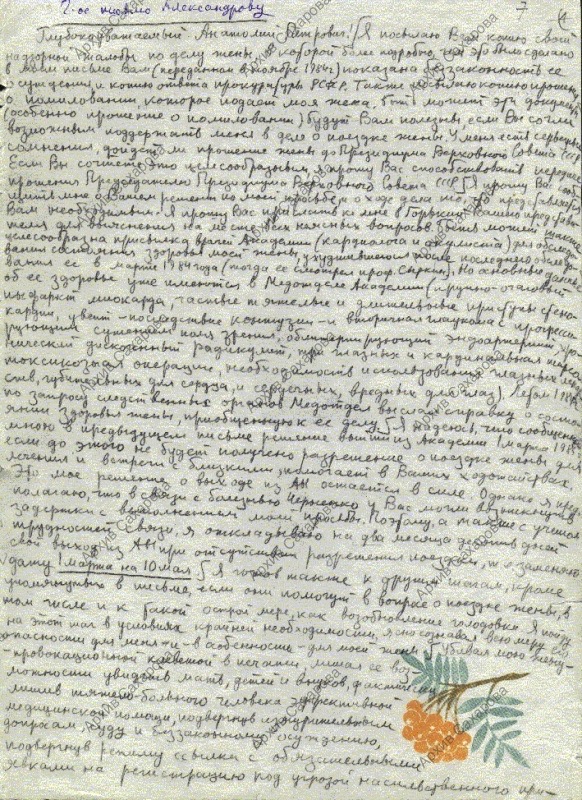 2-ое письмо Александрову
7
Глубокоуважаемый Анатолий Петрович! Я посылаю Вам копию своей
надзорной жалобы по делу жены, в которой более подробно, чем это было сделано
в моем письме Вам (переданном в ноябре 1984г) показана беззаконность ее
осуждения, и копию ответа прокуратуры РСФСР. Также посылаю копию прошения
о помиловании, которое подает моя жена. Быть может эти документы
(особенно прошение о помиловании) будут Вам полезны, если Вы сочтете
возможным поддержать меня в деле о поездке жены. У меня есть серьезные
сомнения, дойдет ли прошение жены до Президиума Верховного Совета СССР.
Если Вы сочтете это целесообразным, я прошу Вас способствовать передаче
прошения Председателю Президиума Верховного Совета СССР. Я прошу Вас сооб-
щить мне о Вашем решении по моей просьбе и о ходе дела
Вам необходимым. Я прошу Вас прислать ко мне в Горький Вашего представи-
теля для выяснения на месте всех неясных вопросов. Быть может также
целесообразна присылка врачей Академии (кардиолога и окулиста) для обследо-
вания состояния здоровья моей жены, ухудшившегося после последнего обследо-
вания ее в марте 1984 года (тогда ее смотрел проф. Сыркин). Но основные данные
об ее здоровье уже имеются в Медотделе Академии (крупно-очаговый
инфаркт миокарда, частые тяжелые и длительные приступы стено-
кардии, увеит - последствие контузии - и вторичная глаукома с прогресси-
рующим сужением поля зрения, облитерирующий эндоартериит, хро-
нический дискозный радикулит, три глазных и кардинальная
токсикозная операции, необходимость использования глазных
ств, губительных для сердца, и сердечных, вредных для глаз). Летом 1984
по запросу следственных органов Медотдел выслал справку о состо-
янии здоровья жены, приобщенную к ее делу. Я надеюсь, что сообщенное
мною в предыдущем письме решение выйти из Академии 1 марта 1985
если до этого не будет получено разрешение о поездке жены для
лечения и встречи с близкими, помогает в Ваших ходатайствах.
Это мое решение о выходе из АН остается в силе. Однако я пред-
полагаю, что в связи с болезнью Черненко у Вас могли возникнуть
задержки с выполнением моей просьбы. Поэтому, а также с учетом
трудностей связи, я откладываю на два месяца десять дней
свой выход из АН при отсутствии разрешения поездки, т.е. заменяю
дату 1 марта на 10 мая. Я готов также к другим шагам, кроме
упомянутых в письме, если они помогут в вопросе о поездке жены, в
том числе и к такой острой мере, как возобновление голодовки. Я пойду
на этот шаг в условиях крайней необходимости, ясно сознавая всю меру его
опасности для меня - и - в особенности - для моей жены. Убивая мою жену
провокационной клеветой в печати, лишая ее воз-
можности увидеть мать, детей и внуков, фактически
лишив тяжело-больного человека эффективной
медицинской помощи, подвергнув изнурительным
допросам, суду и беззаконному осуждению,
подвергнув режиму ссылки с обязательными
явками на регистрацию под угрозой насильственного при-
Архив Сахарова